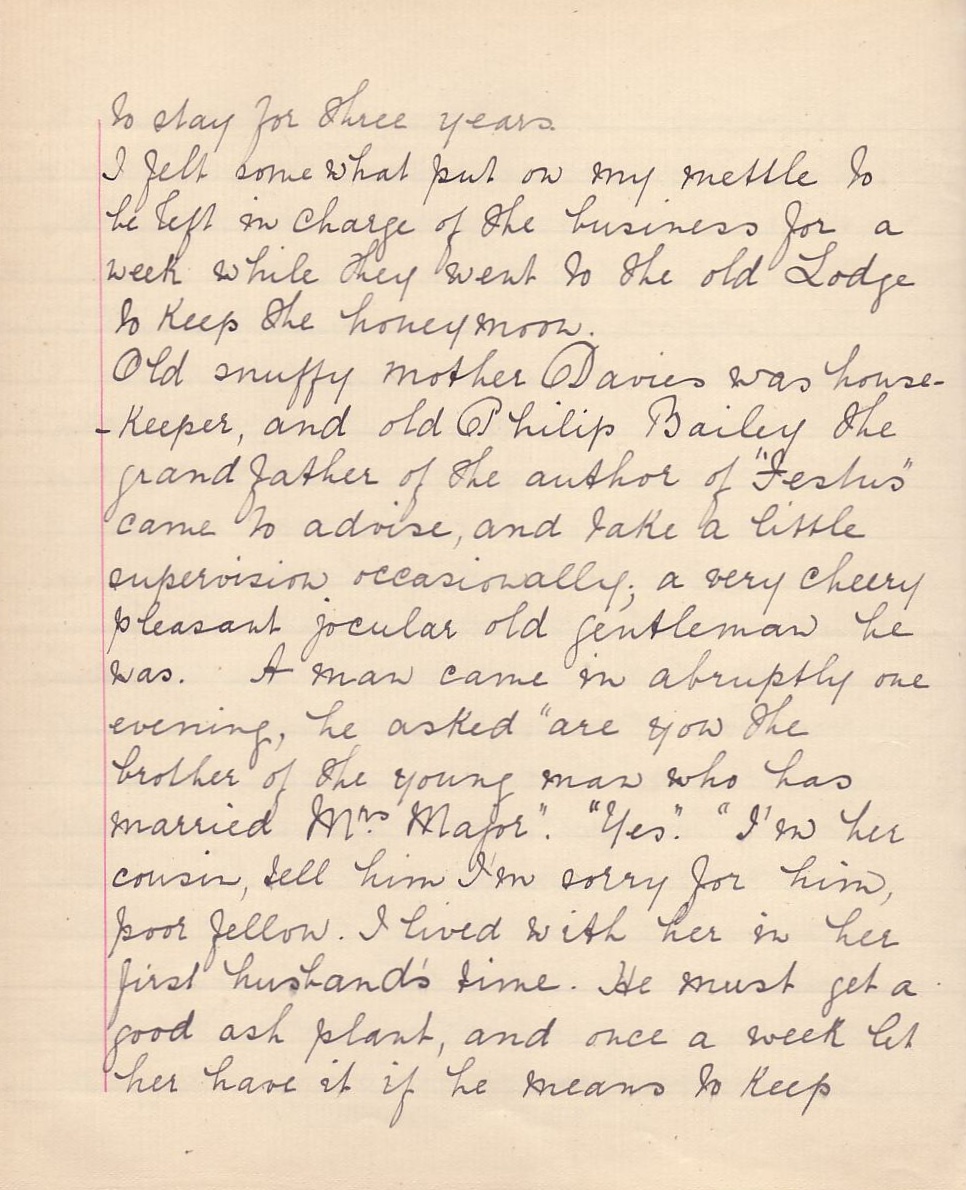 to stay for three years.
I felt somewhat put on my mettle to
be left in charge of the business for a
week while they went to the old Lodge
to keep the honeymoon.
Old snuffy mother Davies was house-
-keeper, and old Philip Bailey the
grandfather of the author of "Festus"
came to advise, and take a little
supervision occasionally; a very cheery
pleasant jocular old gentleman he
was. A man came in abruptly one
evening, he asked "are you the
brother of the young man who has
married Mrs. Major". "Yes". "I'm her
cousin, tell him I'm sorry for him,
poor fellow. I lived with her in her
first husband's time. He must get a
good ash plant, and once a week let
her have it if he means to keep